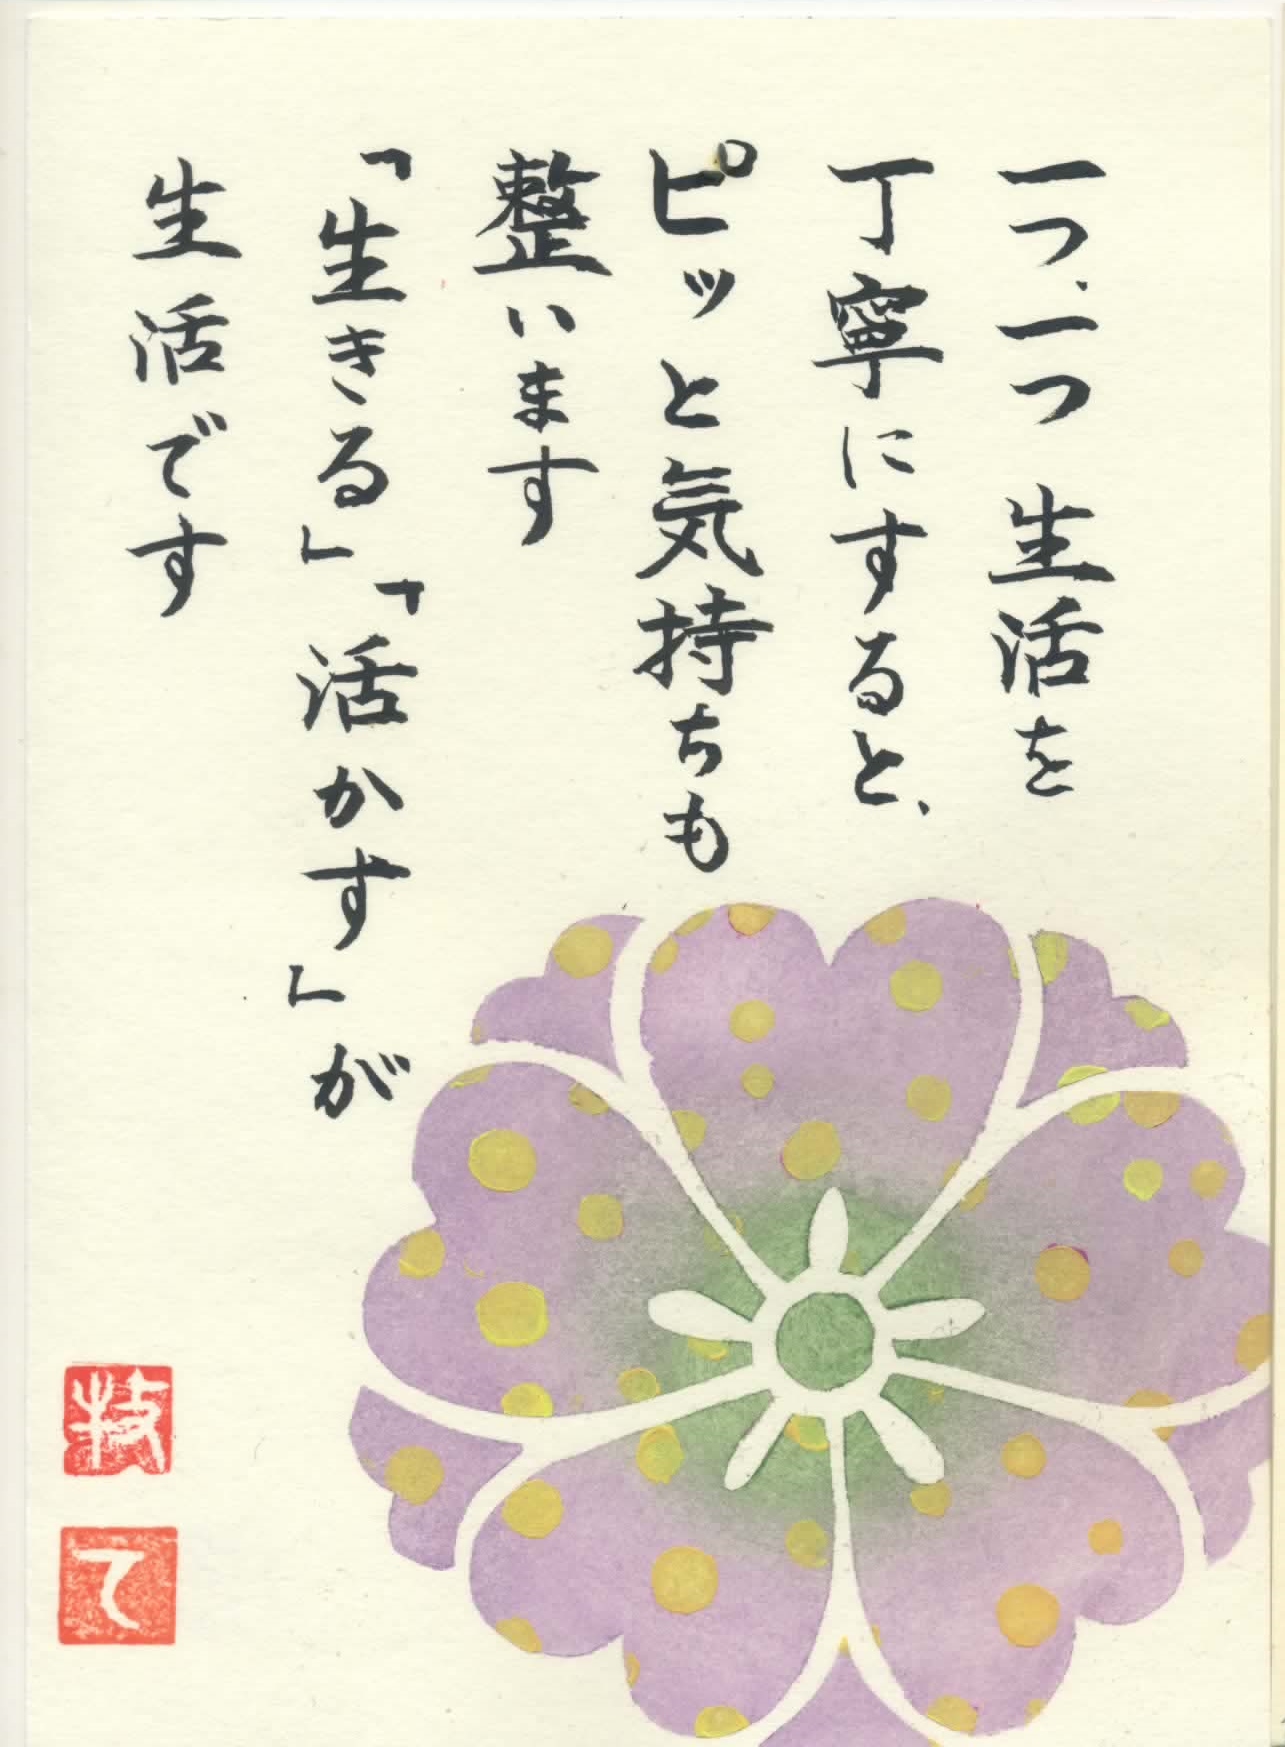 一つ、一つ生活を
丁寧にすると、
ピッと気持ちも
整います
「生きる」「活かす」が
生活です
技
て